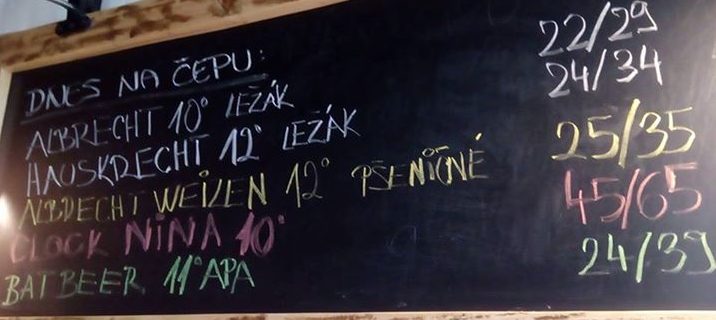 DNES NA ČEPU:
ALBRECHT 10° LEŽÁK 22/29
HAUSKRECHT 12° LEŽÁK 24/34
ALBRECHT WEIZEN 12° PŠENIČNÉ 25/35
CLOCK NINA 10° 45/65
BAT BEER 11° APA 24/39